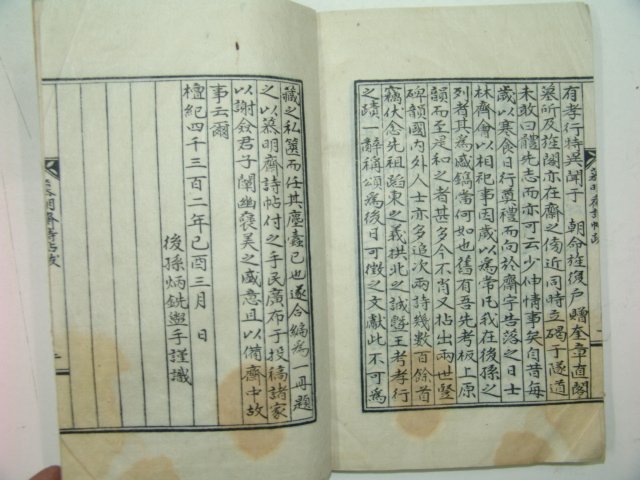 有孝行特異聞于 朝命旌復戶贈奎章直閣
又所及旌閭亦在齋之傍近同時立碣于隧道
未敢曰體先志而亦可云少伸情事矣自昔每
歲以寒食日行奠禮而向於齋宇告落之日士
林齋會以相祀事因歲以爲常凡我在後孫之
列者其爲感鎬當何如也舊有吾先考板上原
韻而至寔和之者甚多今不肖又拈出兩世竪
碑韻國內外人士亦多追次兩詩幾數百餘首
竊伏念先祖蹈東之義拱北之誠曁王考孝行
之蹟一辭稱頌爲後日可徵之文獻此不可爲
藏之私篋而任其塵蠹已也遂合編爲一冊題
之以慕明齋詩帖付之手民廣布于投稿諸家
以謝僉君子闡幽褒美之盛意且以備齋中故
事云爾
檀紀四千三百二年己酉三月 日
後孫炳銑盥手謹識
慕明齋詩帖跋
慕明齋詩帖跋